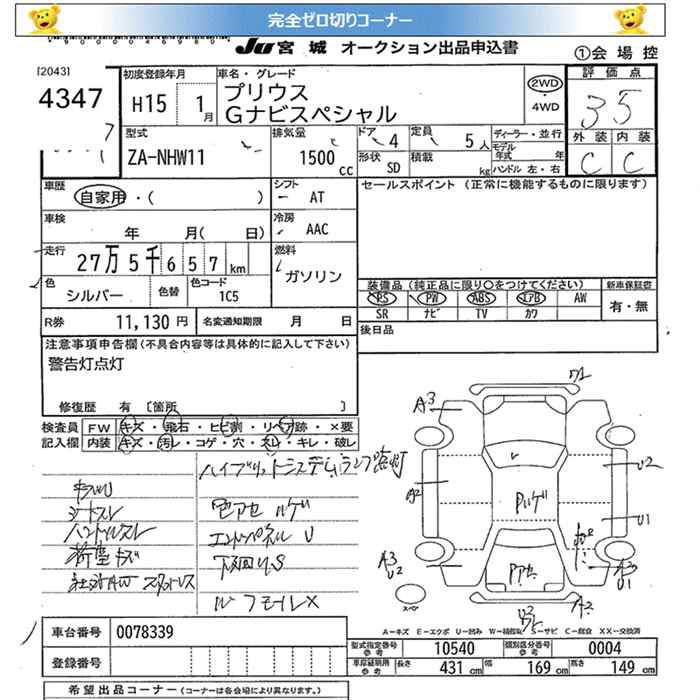 完全ゼロ切りコーナー
JU 宮城 オークション出品申込書
①会場控
[2043]
4347
初度登録年月
H15 1月
車名・グレード
プリウス
Gナビスペシャル
2WD
・
4WD
評価点
35
外装 内装
C C
型式
ZA-NHW11
排気量
1500 cc
ドア 4
形状 SD
定員 5人
積載 kg
ディーラー・並行
モデル年式 年
ハンドル 左・右
車歴
自家用・( )
シフト
AT
セールスポイント (正常に機能するものに限ります)
車検
年 月( 日)
冷房
AAC
走行
27万5千657km
燃料
ガソリン
色
シルバー
色替
色コード
1C5
装備品 (純正品に限り○をつけてください)
PS PW ABS エアB AW
SR ナビ TV カワ
新車保証書
有・無
R券 11,130円
名変通知期限 月 日
後日品
注意事項申告欄 (不具合内容等は具体的に記入して下さい)
警告灯点灯
修復歴 有 [箇所 ]
検査員記入欄
FW キズ・飛石・ヒビ割・リペア跡・×要
内装 キズ・汚レ・コゲ・穴・スレ・キレ・破レ
ハイブリットシステムランプ点灯
シートスレ
ハンドルスレ
荷室キズ
色アセ ルゲ
エンドパネル U
下回りS
A3
U2
U1
A2
A3
U2
A3
U1
スペア
A-キズ E-エクボ U-凹み W-補修跡 S-サビ C-腐食 XX-交換済
車台番号 0078339
登録番号
型式指定番号参考 10540
類別区分番号参考 0004
車庫証明用参考 長さ 431cm 幅 169cm 高さ 149cm
希望出品コーナー (コーナーは各会場により異なります。)